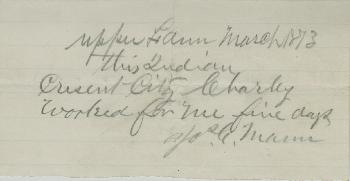 upper Farm March 1873
this Indian
Cresent City Charley
Worked for me five days
Jos. C. Mann